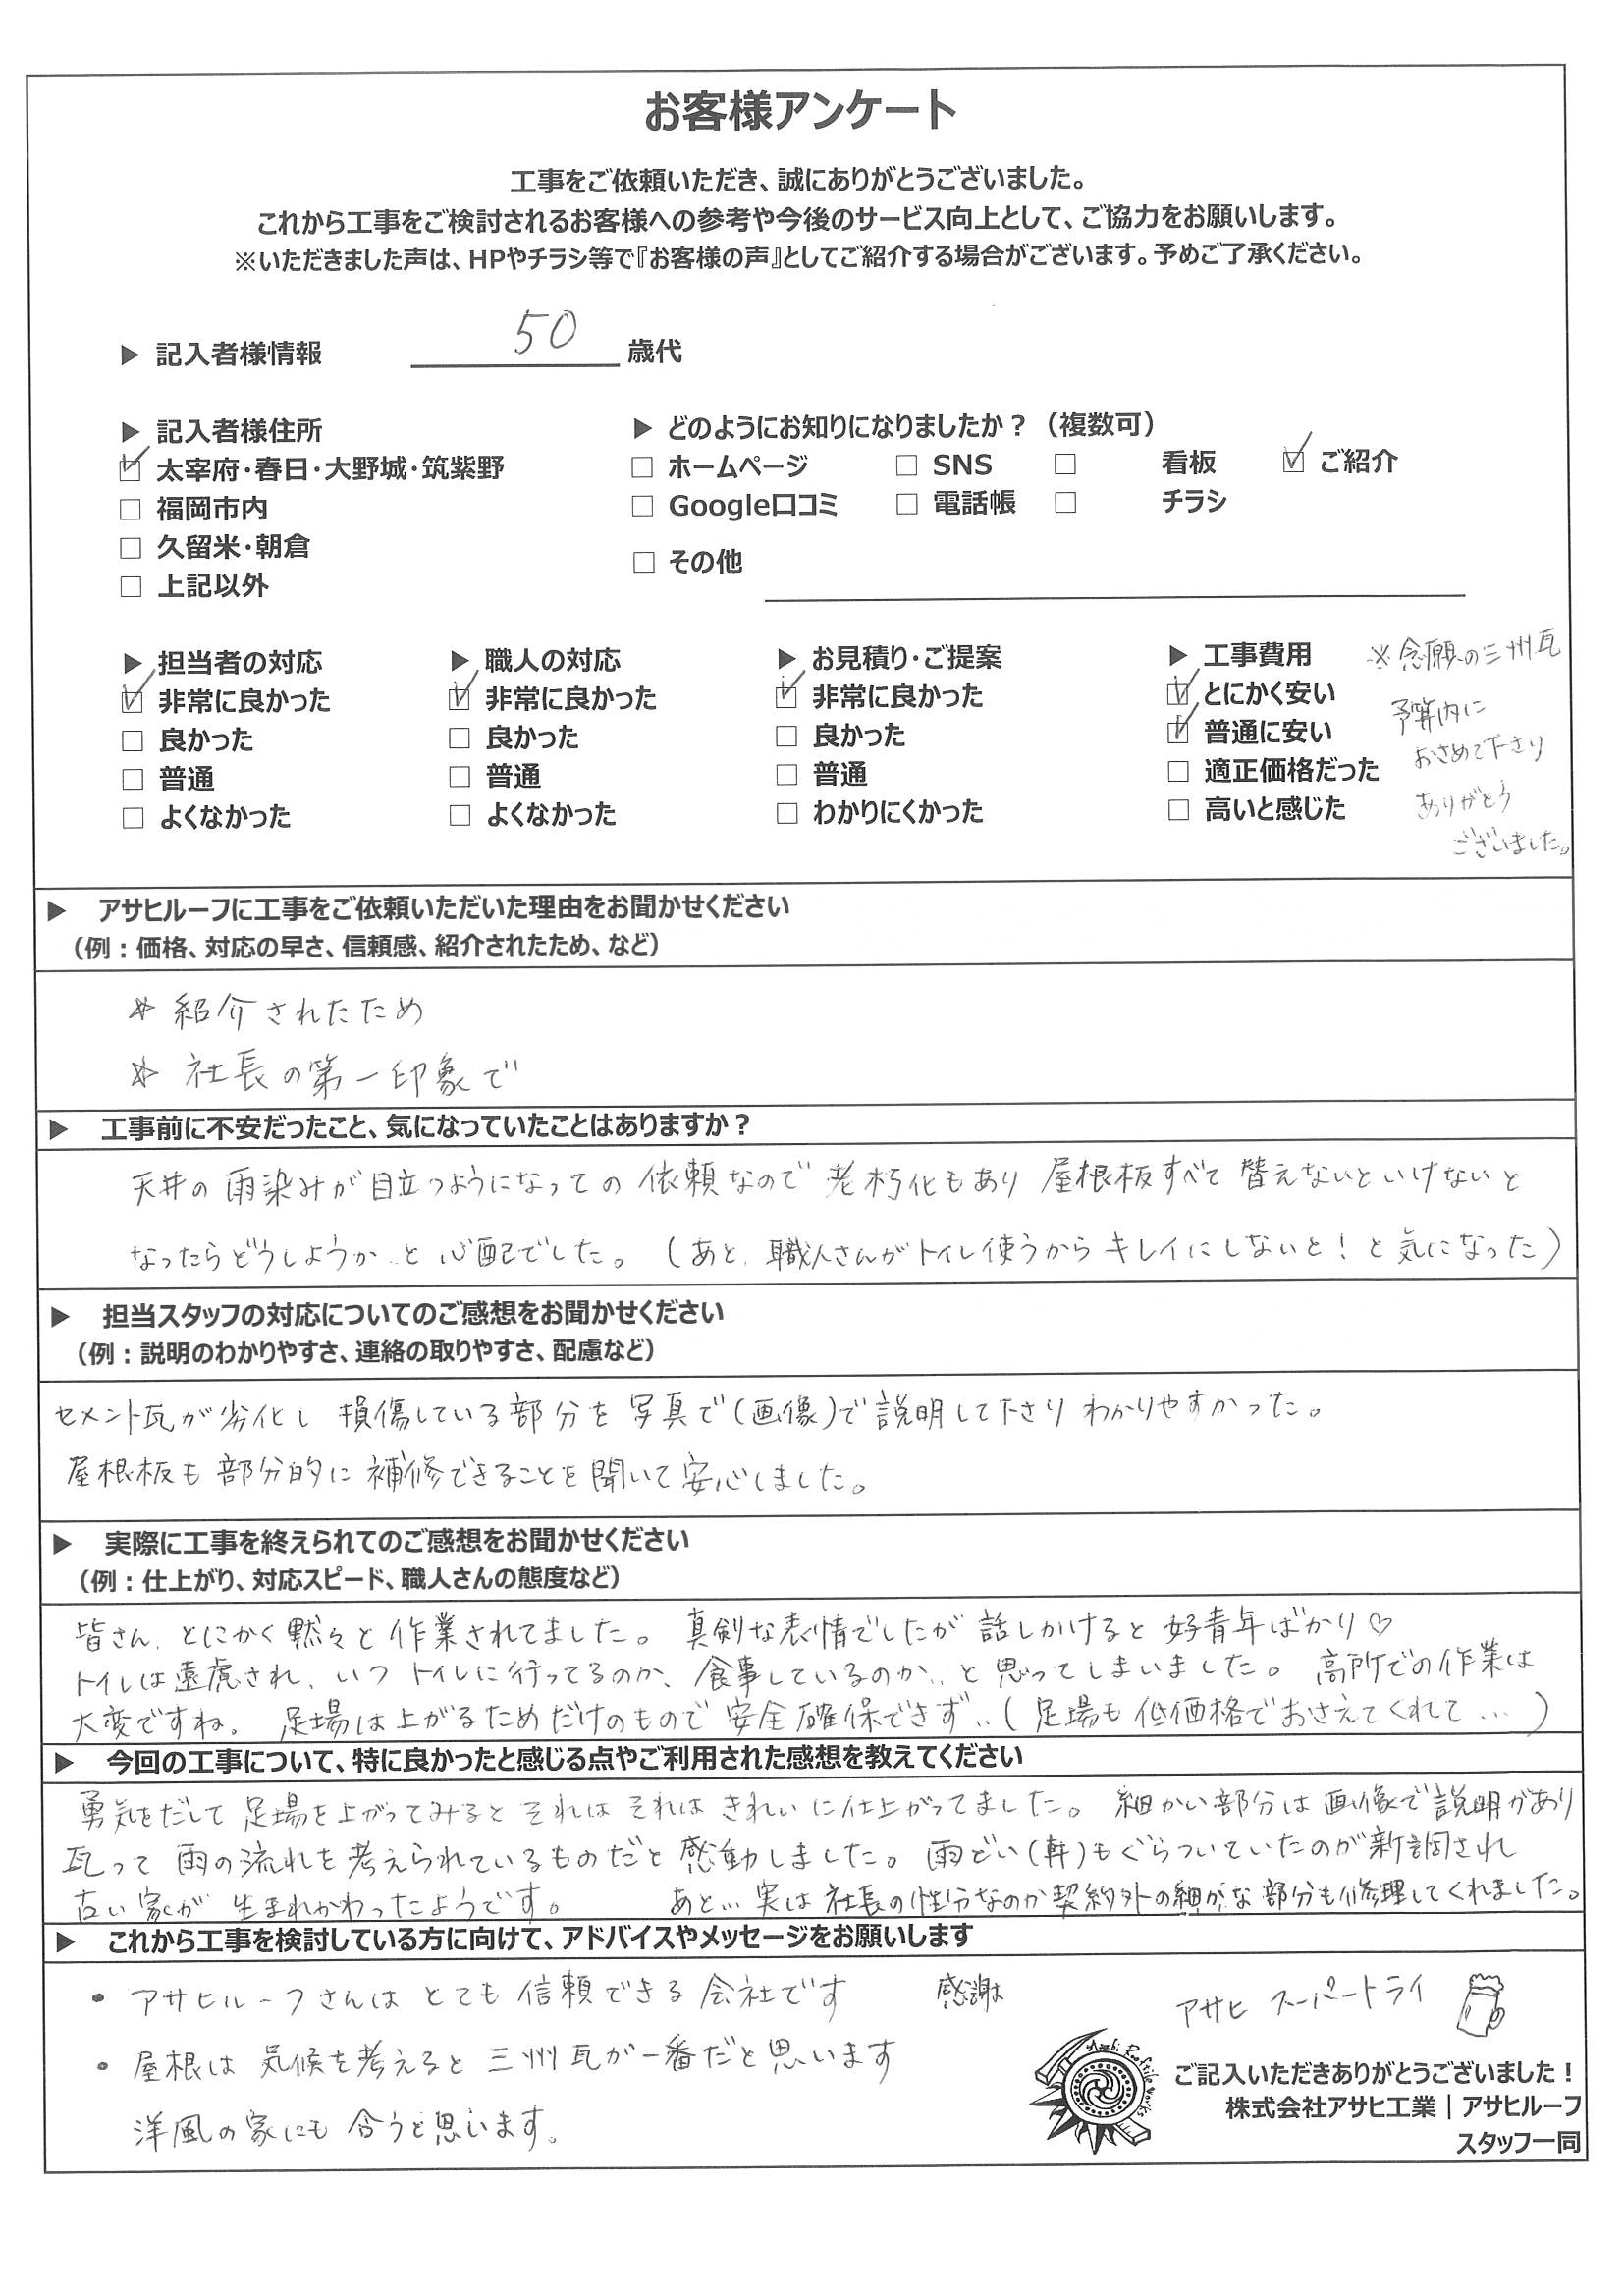 お客様アンケート
工事をご依頼いただき、誠にありがとうございました。
これから工事をご検討されるお客様への参考や今後のサービス向上として、ご協力をお願いします。
※いただきました声は、HPやチラシ等で『お客様の声』としてご紹介する場合がございます。予めご了承ください。
▶ 記入者様情報 50 歳代
▶ 記入者様住所
☑ 太宰府・春日・大野城・筑紫野
□ 福岡市内
□ 久留米・朝倉
□ 上記以外
▶ どのようにお知りになりましたか？（複数可）
□ ホームページ □ SNS □ 看板 ☑ ご紹介
□ Google口コミ □ 電話帳 □ チラシ
□ その他
▶ 担当者の対応
☑ 非常に良かった
□ 良かった
□ 普通
□ よくなかった
▶ 職人の対応
☑ 非常に良かった
□ 良かった
□ 普通
□ よくなかった
▶ お見積り・ご提案
☑ 非常に良かった
□ 良かった
□ 普通
□ わかりにくかった
▶ 工事費用
☑ とにかく安い
☑ 普通に安い
□ 適正価格だった
□ 高いと感じた
※念願の三州瓦
予算内に
おさめて下さり
ありがとう
ございました。
▶ アサヒルーフに工事をご依頼いただいた理由をお聞かせください
（例：価格、対応の早さ、信頼感、紹介されたため、など）
☆ 紹介されたため
☆ 社長の第一印象で
▶ 工事前に不安だったこと、気になっていたことはありますか？
天井の雨染みが目立つようになっての依頼なので老朽化もあり 屋根板すべて替えないといけないと
なったらどうしようか..と心配でした。（あと、職人さんがトイレ使うからキレイにしないと！と気になった）
▶ 担当スタッフの対応についてのご感想をお聞かせください
（例：説明のわかりやすさ、連絡の取りやすさ、配慮など）
セメント瓦が劣化し 損傷している部分を写真で（画像）で説明して下さり わかりやすかった。
屋根板も部分的に補修できることを聞いて安心しました。
▶ 実際に工事を終えられてのご感想をお聞かせください
（例：仕上がり、対応スピード、職人さんの態度など）
皆さん、とにかく黙々と作業されてました。 真剣な表情でしたが 話しかけると好青年ばかり♡
トイレは遠慮され、いつトイレに行ってるのか、食事しているのか..と思ってしまいました。 高所での作業は
大変ですね。 足場は上がるためだけのもので安全確保できず..（足場も低価格でおさえてくれて...）
▶ 今回の工事について、特に良かったと感じる点やご利用された感想を教えてください
勇気をだして足場を上がってみると それはそれは きれいに仕上がってました。 細かい部分は画像で説明があり
瓦って雨の流れを考えられているものだと感動しました。雨どい（軒）もぐらついていたのが新調され
古い家が生まれかわったようです。 あと...実は社長の性分なのか契約外の細かな部分も修理してくれました。
▶ これから工事を検討している方に向けて、アドバイスやメッセージをお願いします
・アサヒルーフさんはとても信頼できる会社です 感謝
・屋根は気候を考えると三州瓦が一番だと思います
洋風の家にも合うと思います。
アサヒ スーパートライ
Asahi Rooftile Works
ご記入いただきありがとうございました！
株式会社アサヒ工業｜アサヒルーフ
スタッフ一同